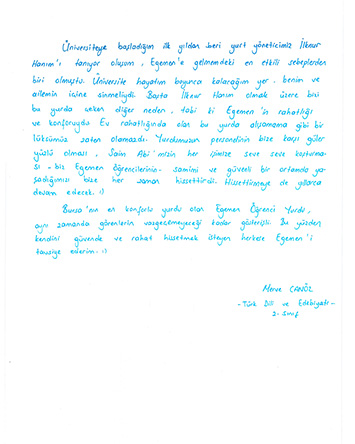 Üniversiteye başladığım ilk yıldan beri yurt yöneticimiz İlknur
Hanım'ı tanıyor oluşum, Egemen'e gelmemdeki en etkili sebeplerden
biri olmuştu. Üniversite hayatım boyunca kalacağım yer, benim ve
ailemin içine sinmeliydi. Başta İlknur Hanım olmak üzere bizi
bu yurda çeken diğer neden, tabi ki Egemen'in rahatlığı
ve konforuydu. Ev rahatlığında olan bu yurda alışamama gibi bir
lüksümüz zaten olamazdı. Yurdumuzun personelinin bize karşı güler
yüzlü olması, Saim Abi'mizin her işimize seve seve koşturma-
sı - biz Egemen Öğrencilerinin - samimi ve güvenli bir ortamda ya-
şadığımızı bize her zaman hissettirdi. Hissettirmeye de yıllarca
devam edecek. :)
Bursa'nın en konforlu yurdu olan Egemen Öğrenci Yurdu,
aynı zamanda görenlerin vazgeçemeyeceği kadar gösterişli. Bu yüzden
kendini güvende ve rahat hissetmek isteyen herkese Egemen'i
tavsiye ederim. :)
Merve CANÖZ
-Türk Dili ve Edebiyatı-
2. Sınıf